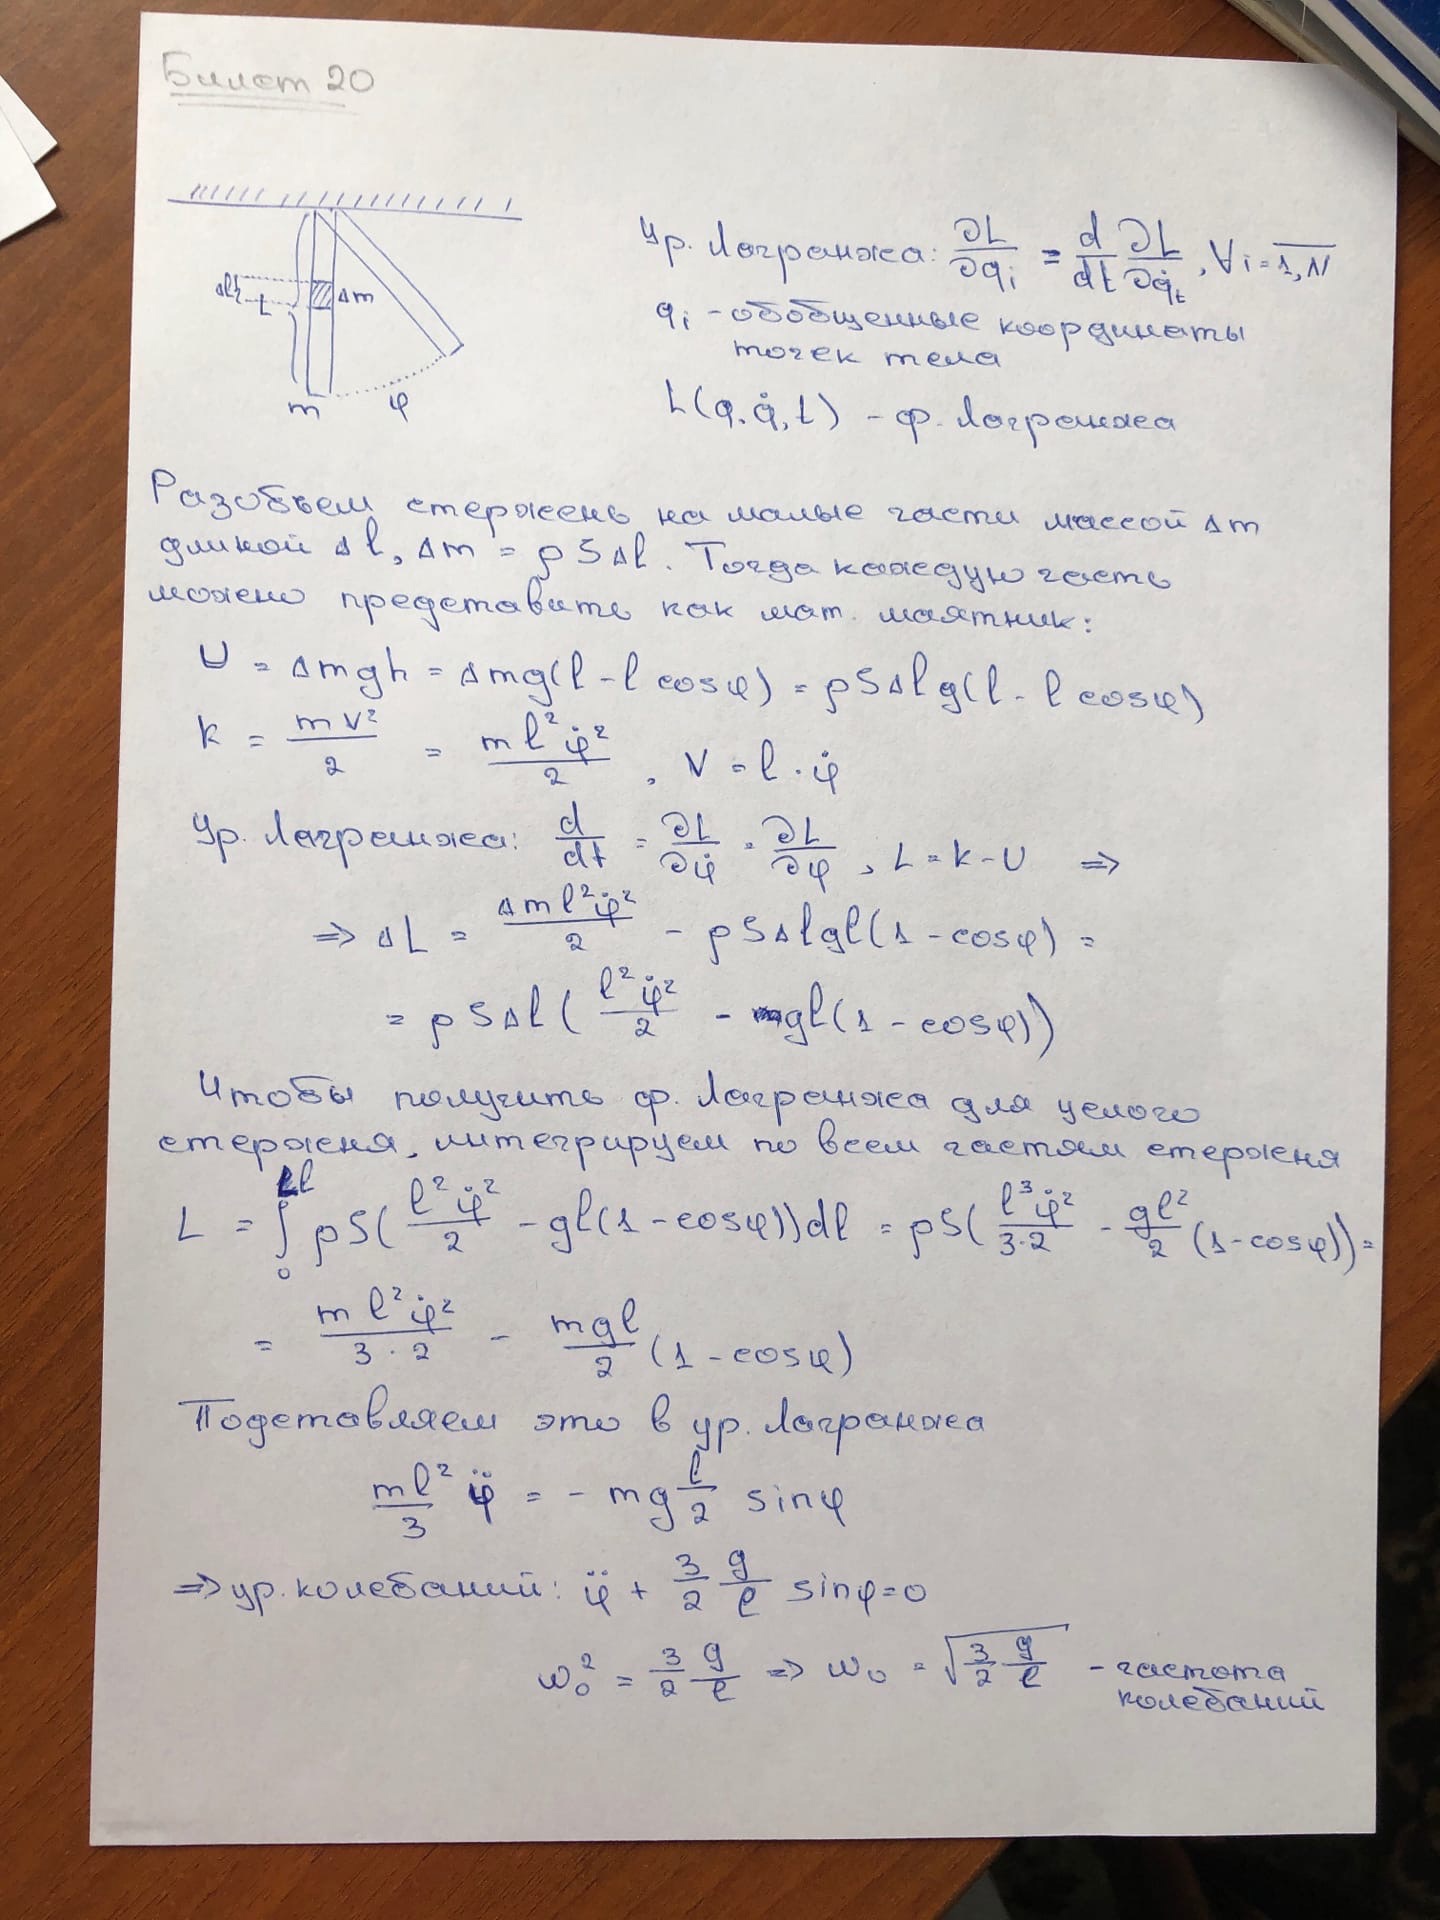 Билет 20
Ур. Лагранжа: ∂L/∂qᵢ = d/dt ∂L/∂q̇ₜ, ∀i = 1,N
qᵢ - обобщенные координаты
точек тела
L(q, q̇, t) - ф. Лагранжа
Δl
l
Δm
m
φ
Разобъем стержень на малые части массой Δm
длиной Δl, Δm = ρSΔl. Тогда каждую часть
можно представить как мат. маятник:
U = Δmgh = Δmg(l - l cosφ) = ρSΔlg(l - l cosφ)
k = mv²/2 = ml²φ̇²/2, V = l·φ̇
Ур. Лагранжа: d/dt = ∂L/∂φ̇ = ∂L/∂φ, L = k - U ⇒
⇒ ΔL = Δml²φ̇²/2 - ρSΔlgl(1 - cosφ) =
= ρSΔl(l²φ̇²/2 - gl(1 - cosφ))
Чтобы получить ф. Лагранжа для целого
стержня, интегрируем по всем частям стержня
L = ∫₀ˡ ρS(l²φ̇²/2 - gl(1 - cosφ))dl = ρS(l³φ̇²/3·2 - gl²/2 (1 - cosφ)) =
= ml²φ̇²/3·2 - mgl/2 (1 - cosφ)
Подставляем это в ур. Лагранжа
ml²/3 φ̈ = - mg l/2 sinφ
⇒ ур. колебаний: φ̈ + 3/2 g/l sinφ = 0
ω₀² = 3/2 g/l ⇒ ω₀ = √(3/2 g/l) - частота
колебаний